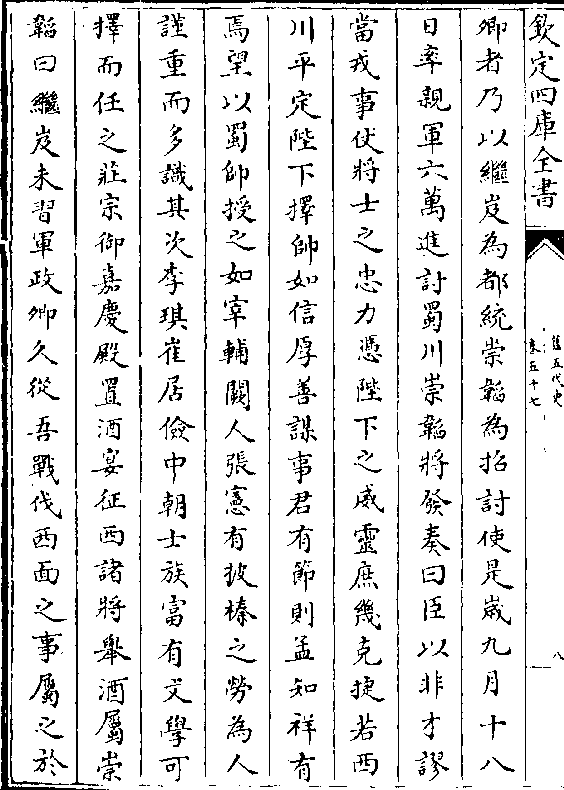 欽定四庫全書
舊五代史
卷五十七
八
卿者乃以繼岌為都統崇韜為招討使是嵗九月十八
日率親軍六萬進討蜀川崇韜將發奏曰臣以非才謬
當戎事仗將士之忠力憑陛下之威靈庶幾克捷若西
川平定陛下擇帥如信厚善謀事君有節則孟知祥有
焉望以蜀帥授之如宰輔闕人張憲有披榛之勞為人
謹重而多識其次李琪崔居儉中朝士族富有文學可
擇而任之莊宗御嘉慶殿置酒宴征西諸將舉酒屬崇
韜曰繼岌未習軍政卿久從吾戰伐西面之事屬之於